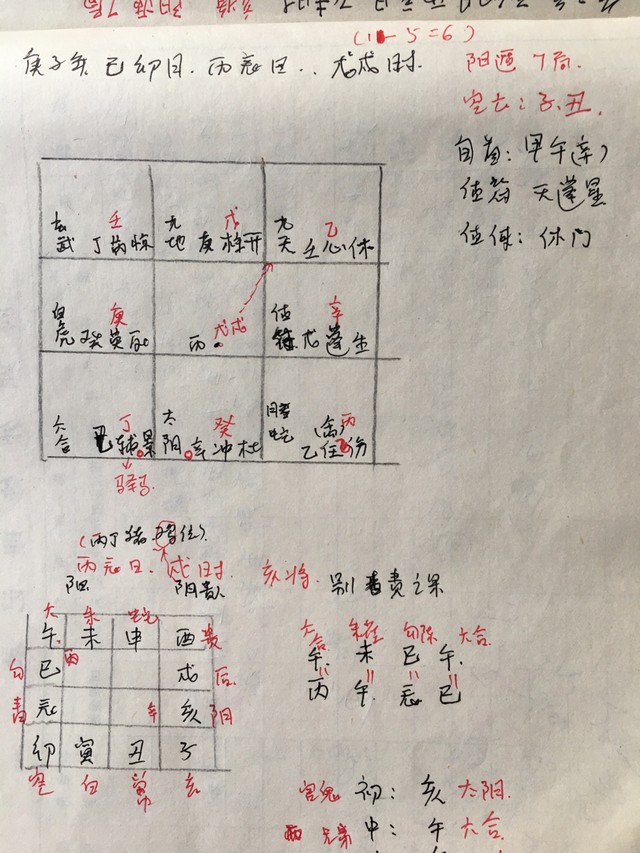 (11-5=6)
庚子年 己卯月. 丙辰日.. 戊戌时.
阳遁7局.
空亡:子.丑.
旬首:甲午(辛)
值符 天蓬星
值使:休门
玄武 壬 丁芮惊
九地 戊 庚柱开
九天 乙 壬心休
白虎 庚 癸英死
戊戌 丙
值符 辛 戊蓬生
六合 丁 己辅景
太阳 癸 辛冲杜
螣蛇 丙 禽 乙任伤
驿马.
(丙丁猪鸡位).
丙辰日. 戌时. 亥将. 别责之课
阳 阴贵
六 朱 蛇
午 未 申 酉 贵
勾 巳 丙 戌 后
青 辰 辛 亥 阴
卯 寅 丑 子
空 白 常 玄
六合 朱雀 勾陈 六合.
午. 未 巳 午.
丙 午 辰 巳
官鬼 初: 亥 太阳.
兄弟 中: 午 六合.